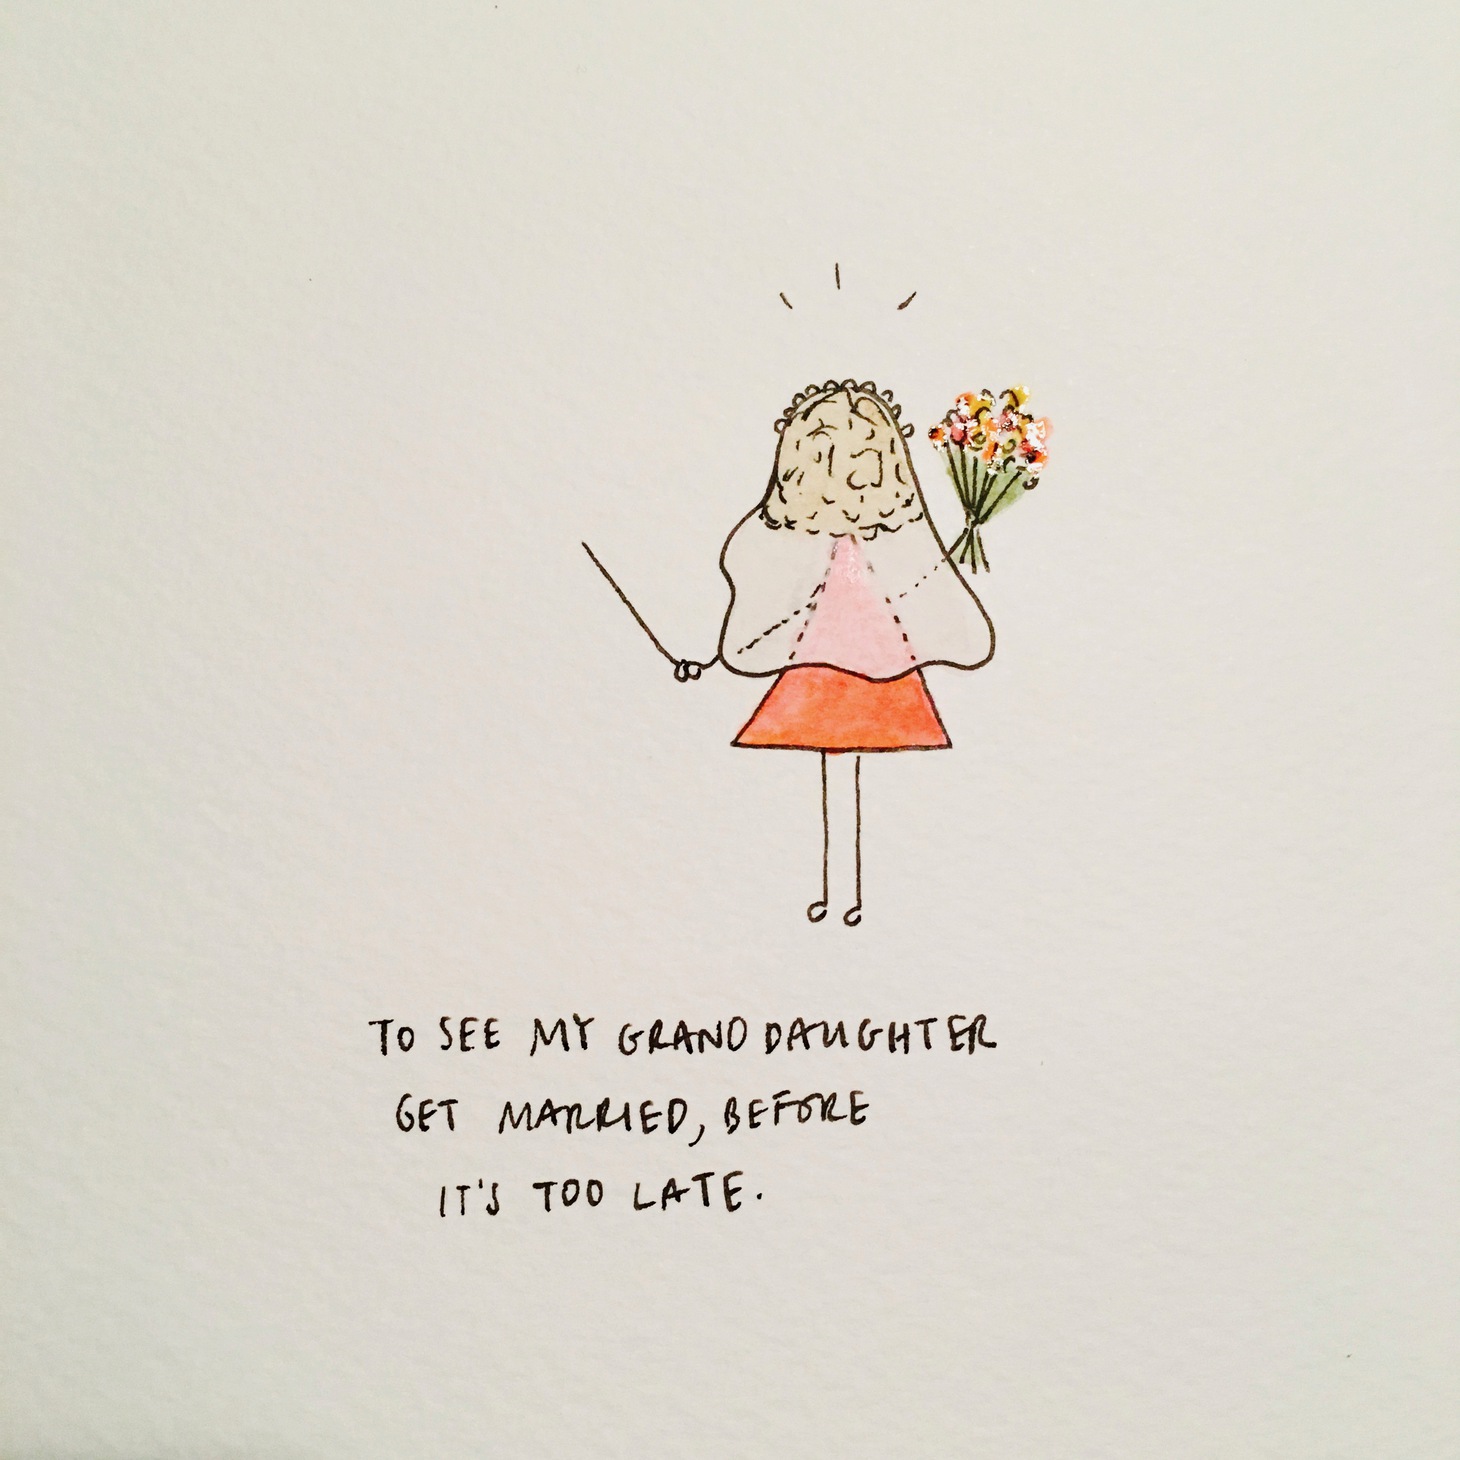 TO SEE MY GRANDDAUGHTER
GET MARRIED, BEFORE
IT'S TOO LATE.